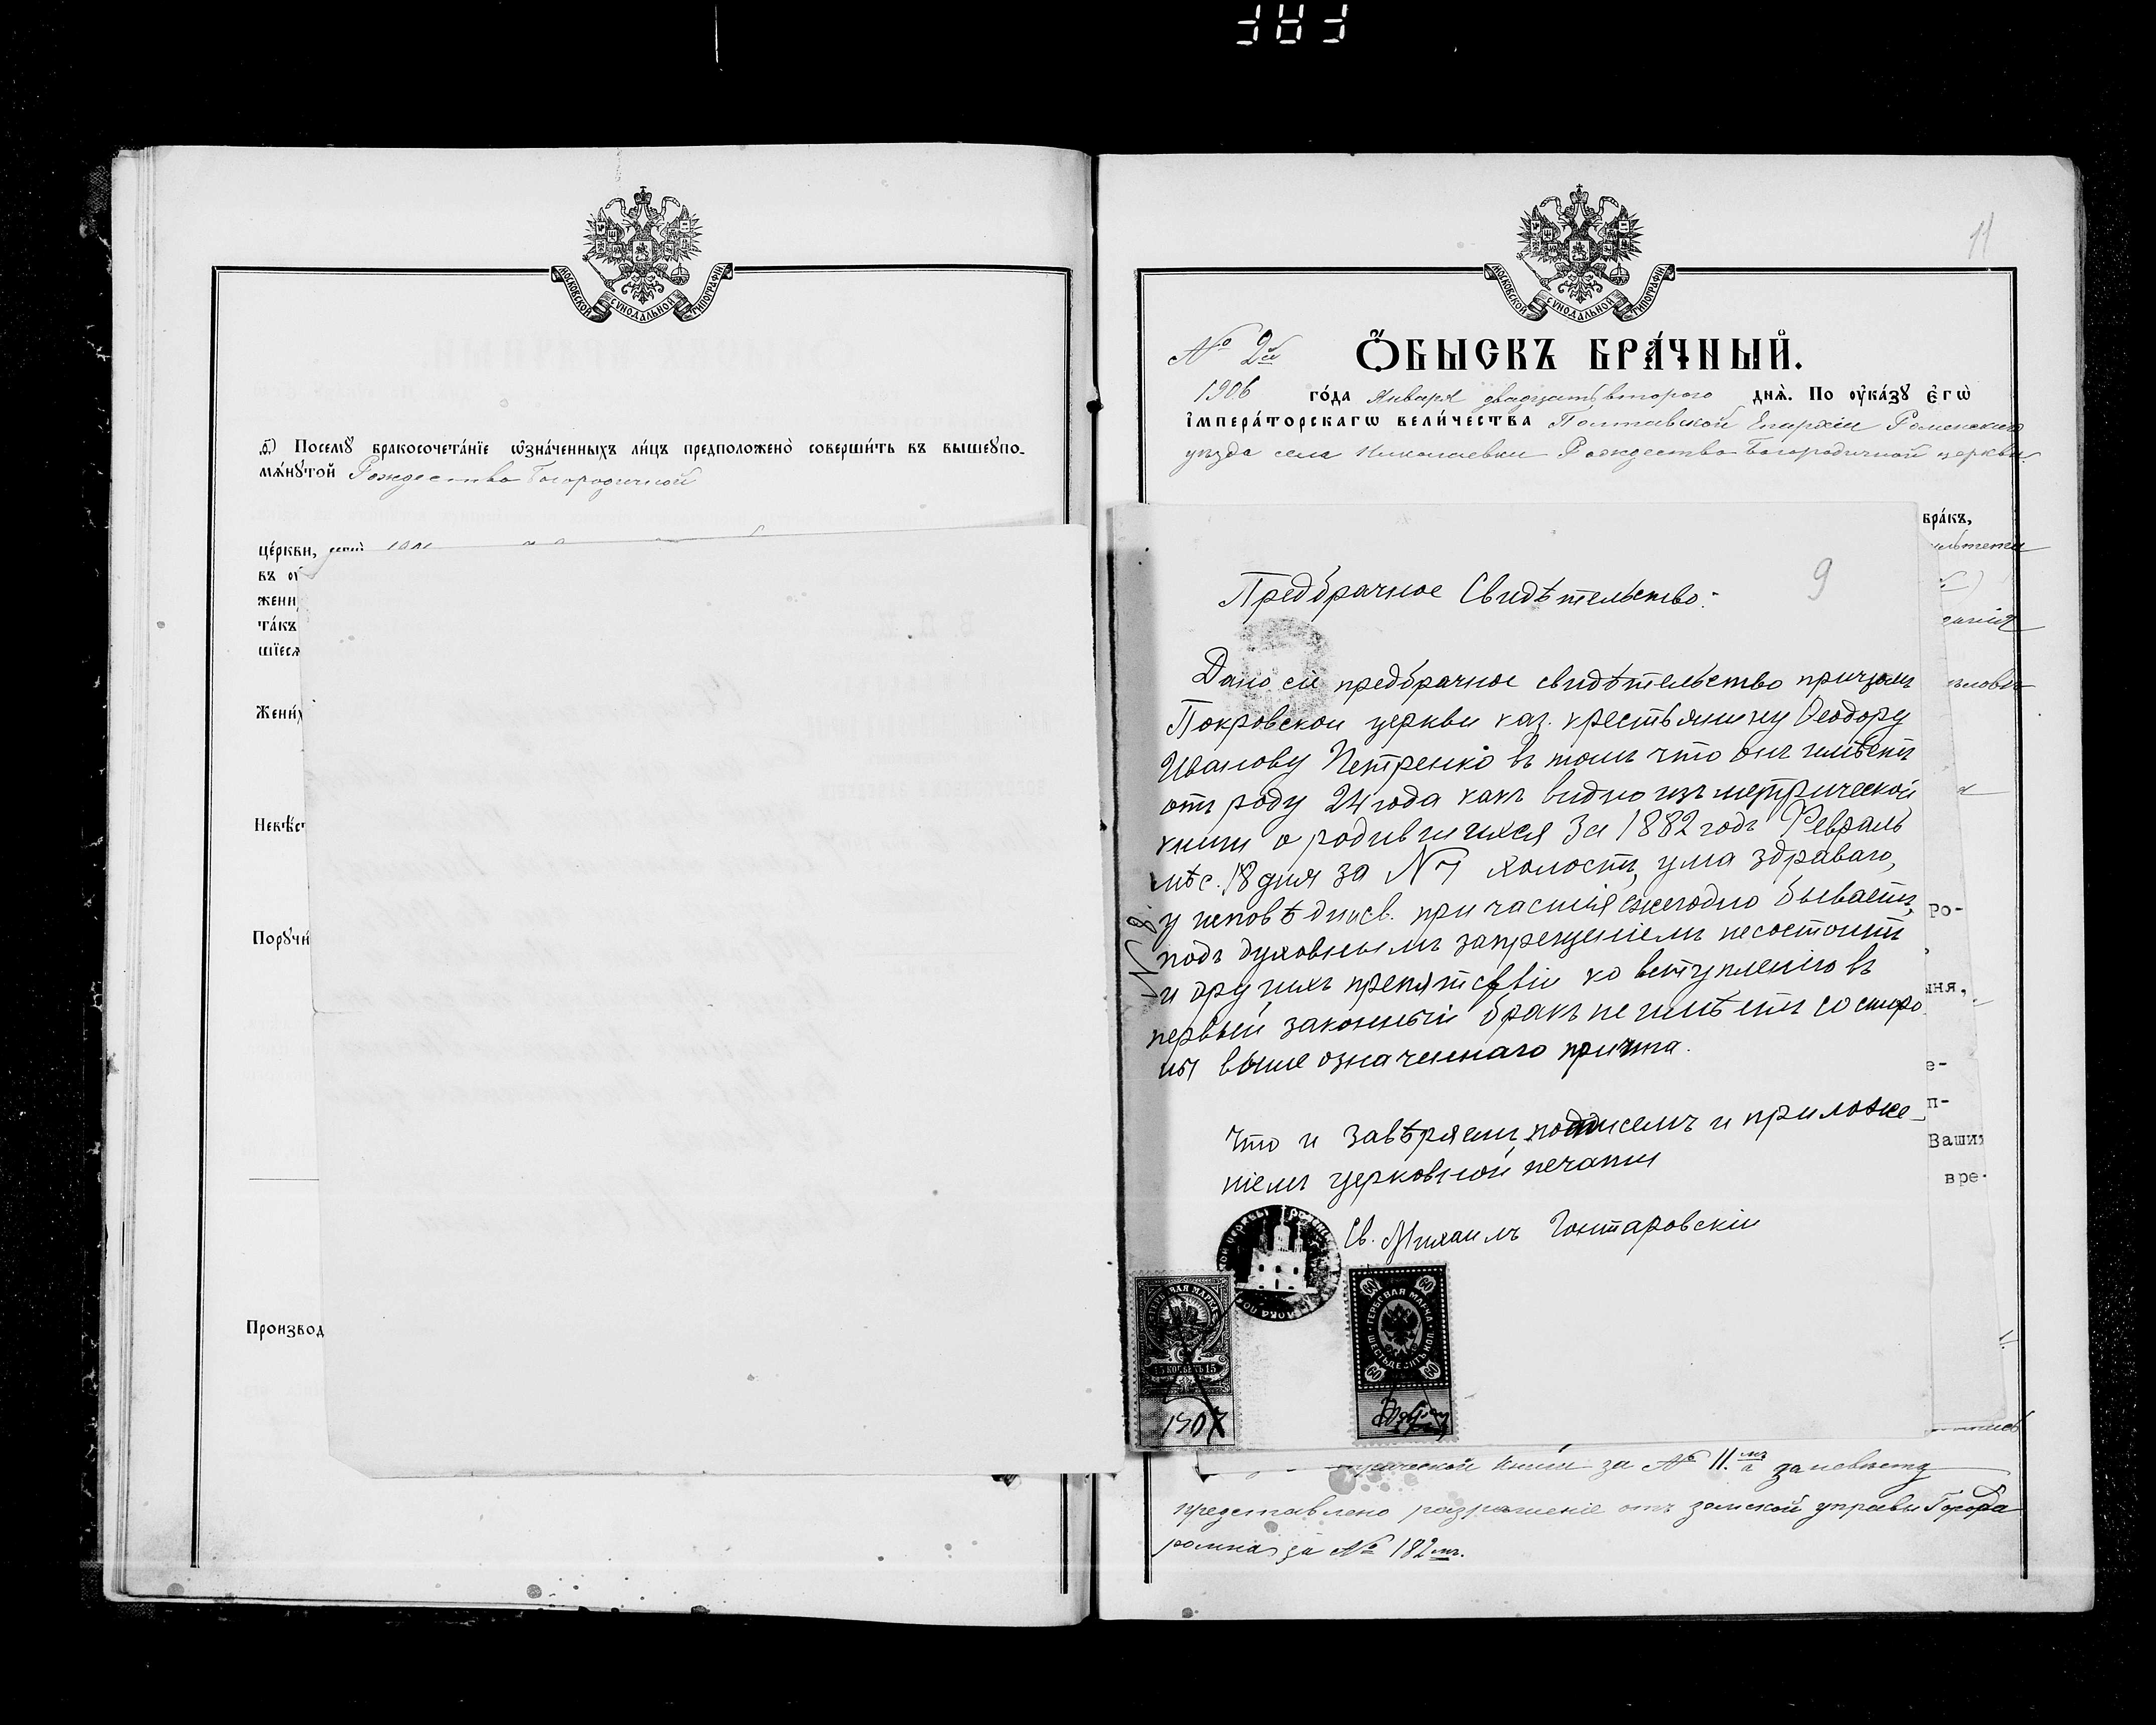 МОСКОВСКОЙ СУНОДАЛЬНОЙ ТИПОГРАФІИ
5) Посемꙋ бракосочетáніе ѡ҆знáченныхъ ли́цъ предположенò соверши́ть въ вышеꙋпо-
мѧ́нꙋтой Рождество Богородичной
цéркви,
въ
жени
тáкъ
шїесѧ
Жени́х
Невѣ́ст
Порꙋчи́
Производ
11
МОСКОВСКОЙ СУНОДАЛЬНОЙ ТИПОГРАФІИ
№ 2й
Ѻ҆БЫСКЪ БРÁЧНЫЙ.
1906 гóда Января двадцать второго днѧ̀. По ᲂу҆кáзꙋ Є҆гѡ̀
І҆мперáторскагѡ вели́чества Полтавской Епархіи Роменскаго
уѣзда села Николаевки Рождество Богородичной церкви
брáкъ,
9
Предбрачное Свидѣтельство.
Дано сіе предбрачное свидѣтельство причтомъ
Покровской церкви каз. крестьянину Ѳеодору
Иванову Петренко въ томъ что онъ имѣетъ
отъ роду 24 года какъ видно изъ метрической
книги о родившихся за 1882 годъ Февраль
мѣс. 18 дня за N 7 холостъ, ума здраваго,
у исповѣди и св. причастія ежегодно бываетъ,
подъ духовнымъ запрещеніемъ несостоитъ
и другихъ препятствіи ко вступленію въ
первый законный бракъ не имѣетъ со сторо
ны выше означеннаго причта.
N 8.
Что и завѣряемъ подписемъ и приложе-
ніемъ церковной печати
Св. Михаилъ Гонтаровскіи
ГЕРБОВАЯ МАРКА
15 КОПѢЕКЪ 15
1907
60 60
ГЕРБОВАЯ МАРКА ШЕСТЬДЕСЯТЪ КОП.
60 60
ро-
ня,
е-
п-
Ваши
вре-
книги за № 11.мъ а за невѣсту
представлено разрѣшеніе отъ земской управы Города
ромна за № 182мъ.